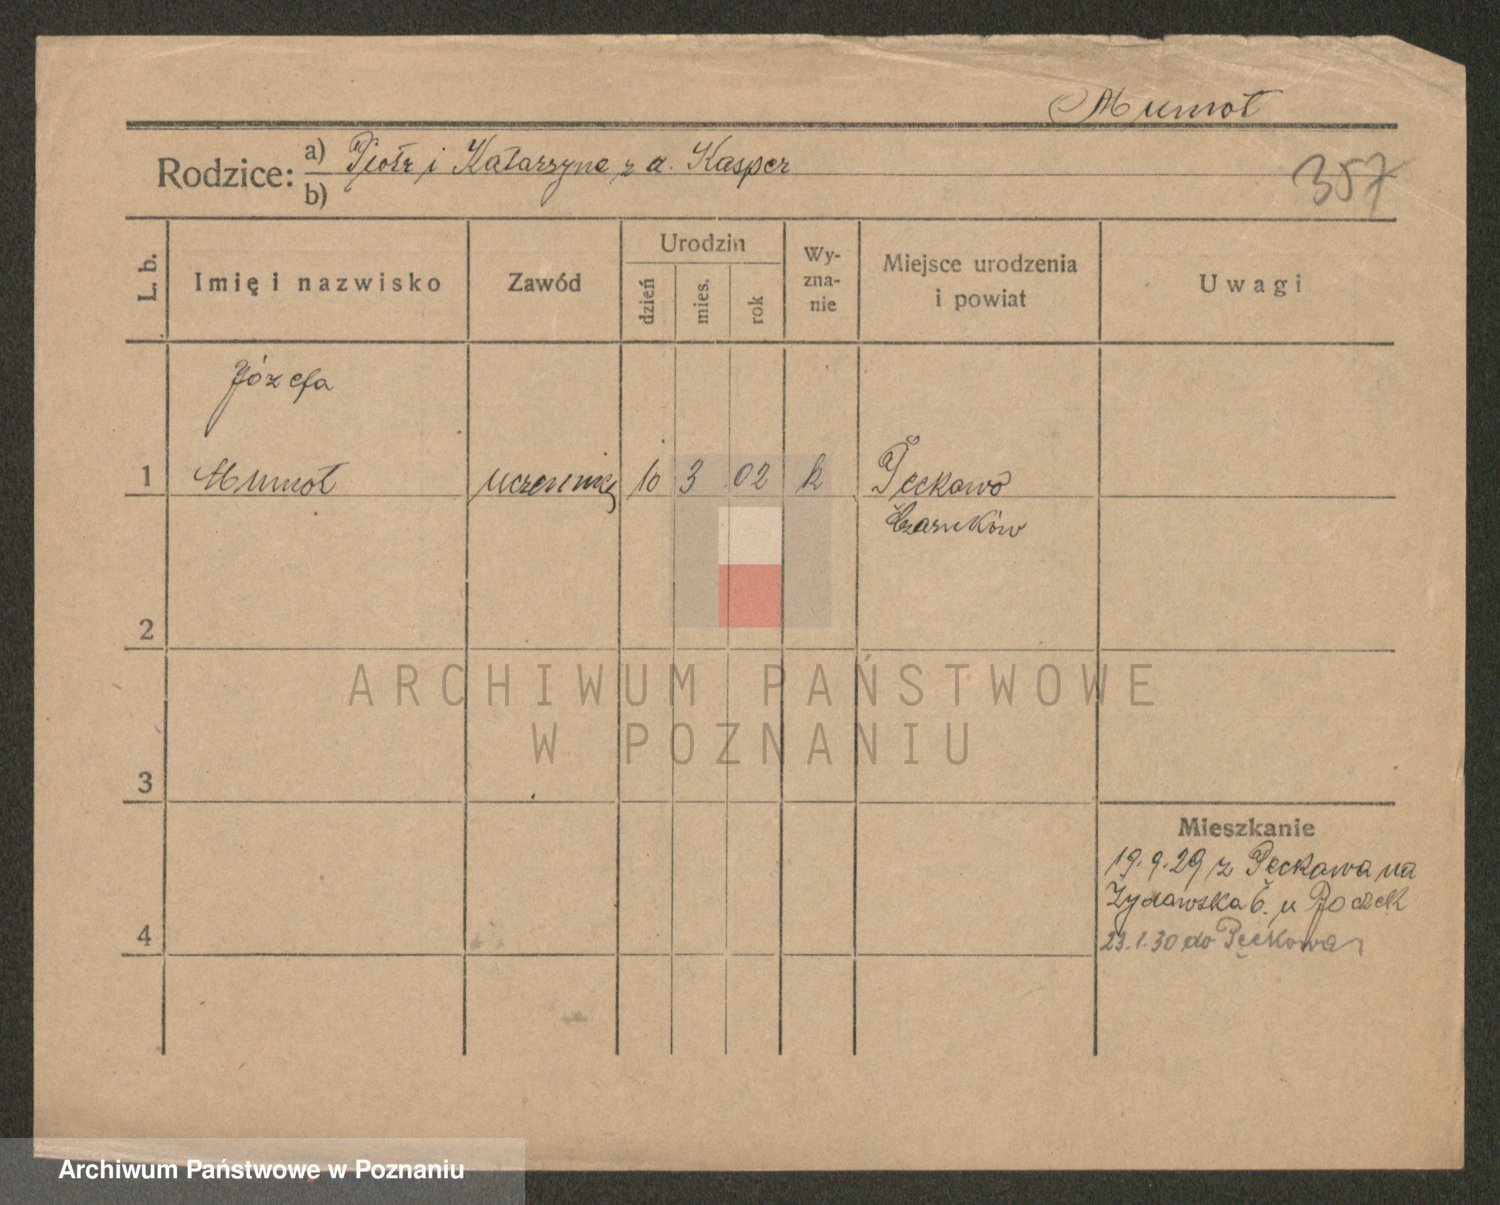 Mumot
Rodzice: a) Piotr i Katarzyna z d. Kasper
b)
357
L. b.
Imię i nazwisko
Zawód
Urodzin
dzień
mies.
rok
Wy-
zna-
nie
Miejsce urodzenia
i powiat
Uwagi
Józefa
1 Mumot uczennica 10 3 02 k Pęckowo
Czarnków
2
3
4
Mieszkanie
19.9.29 z Pęckowa na
Żydowska 6. u
23.1.30 do Pęckowa
ARCHIWUM PAŃSTWOWE
W POZNANIU
Archiwum Państwowe w Poznaniu